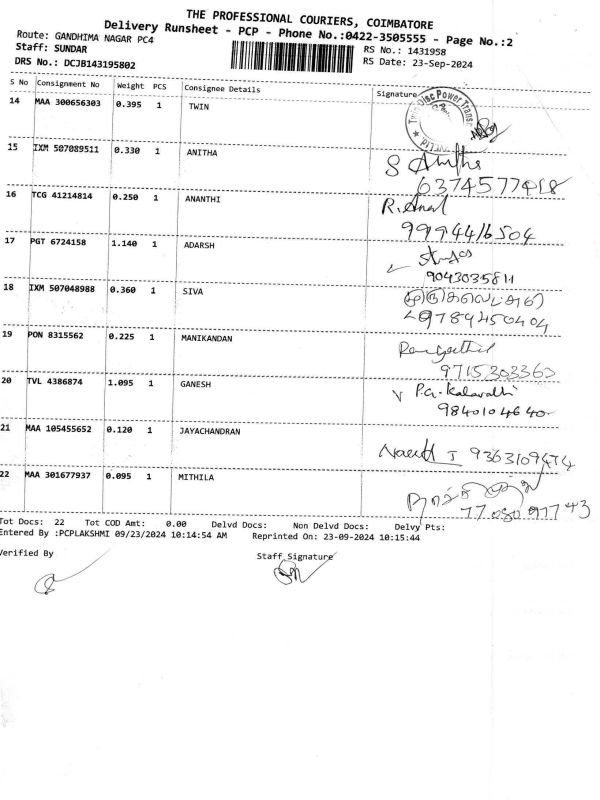 THE PROFESSIONAL COURIERS, COIMBATORE
Delivery Runsheet - PCP - Phone No.:0422-3505555 - Page No.:2
Route: GANDHIMA NAGAR PC4 RS No.: 1431958
Staff: SUNDAR RS Date: 23-Sep-2024
DRS No.: DCJB143195802
S No Consignment No Weight PCS Consignee Details Signature
14 MAA 300656303 0.395 1 TWIN
Twin Disc Power Trans
15 IXM 507089511 0.330 1 ANITHA
S Anitha
6374577418
16 TCG 41214814 0.250 1 ANANTHI
R. Anal
9994416504
17 PGT 6724158 1.140 1 ADARSH
9043035811
18 IXM 507048988 0.360 1 SIVA
9789450404
19 PON 8315562 0.225 1 MANIKANDAN
9715303363
20 TVL 4386874 1.095 1 GANESH
P.G. Kalavathi
9840104640
21 MAA 105455652 0.120 1 JAYACHANDRAN
J 9363109474
22 MAA 301677937 0.095 1 MITHILA
Tot Docs: 22 Tot COD Amt: 0.00 Delvd Docs: Non Delvd Docs: Delvy Pts:
Entered By :PCPLAKSHMI 09/23/2024 10:14:54 AM Reprinted On: 23-09-2024 10:15:44
Verified By Staff Signature